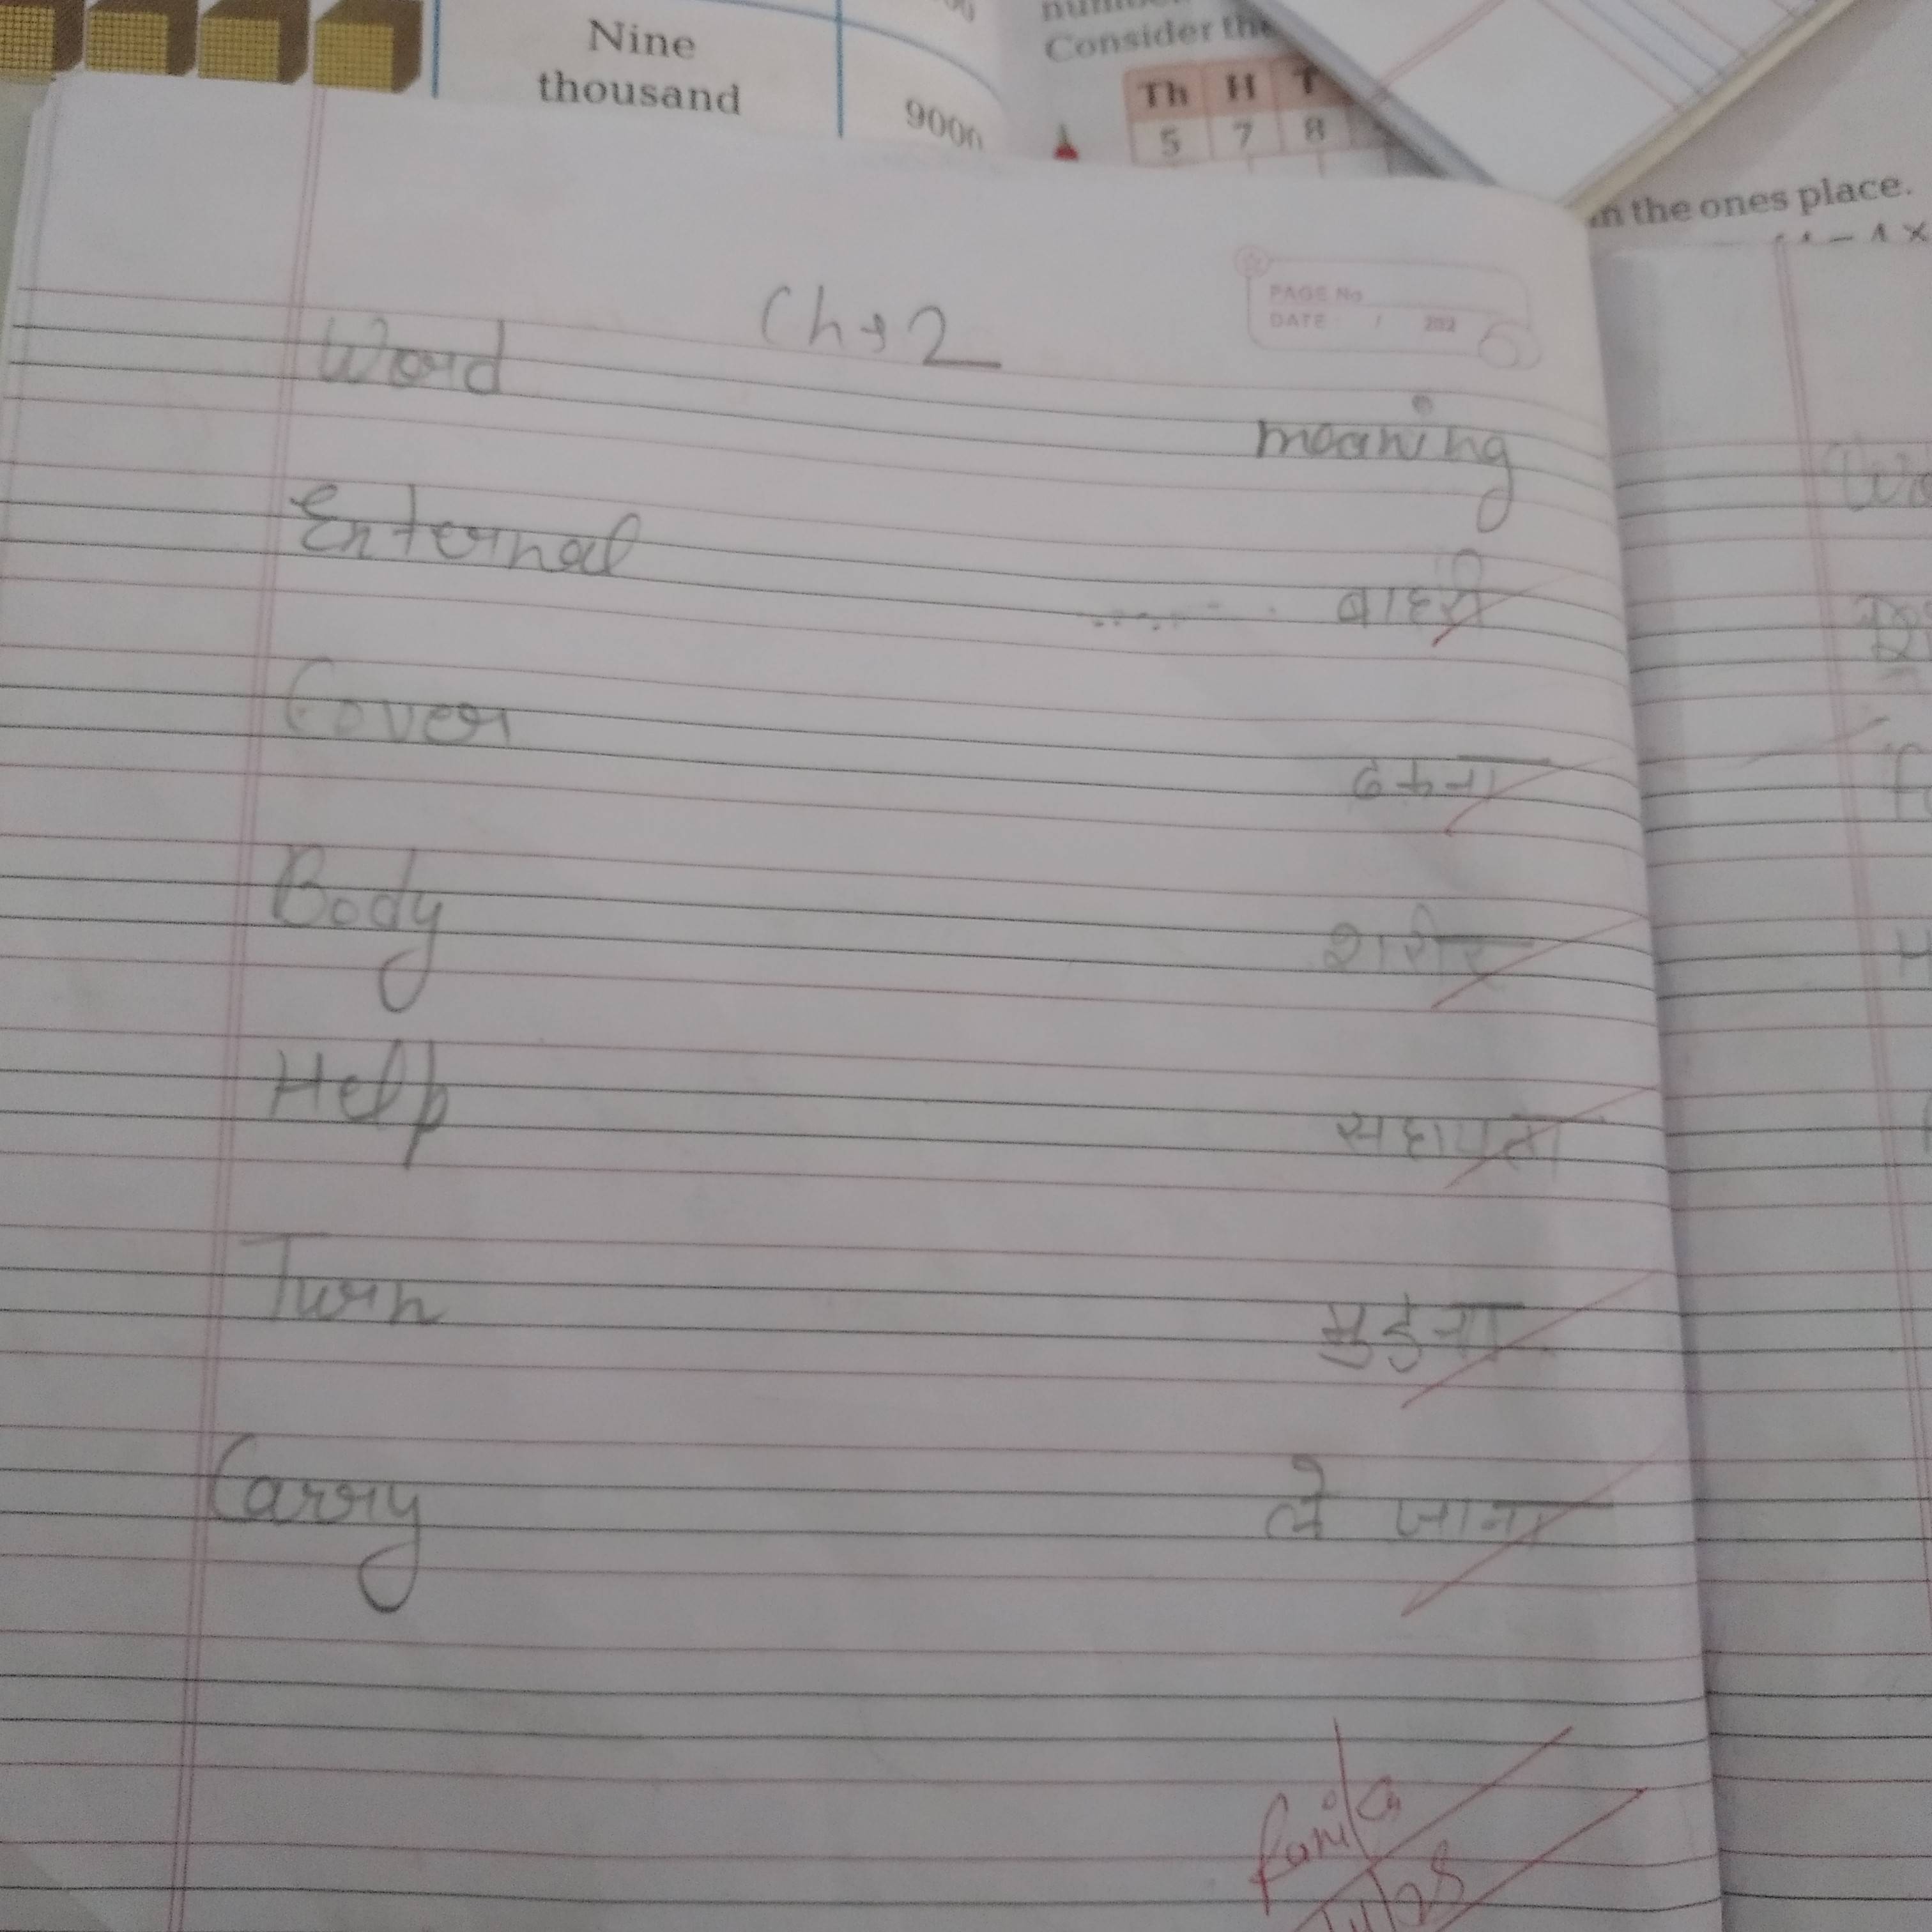 Nine
thousand
9000
Consider the
Th H T
5 7 8
in the ones place.
PAGE No
DATE / 202
Ch → 2
Word meaning
External बाहरी
Cover ढकना
Body शरीर
Help सहायता
Turn मुड़ना
Carry ले जाना